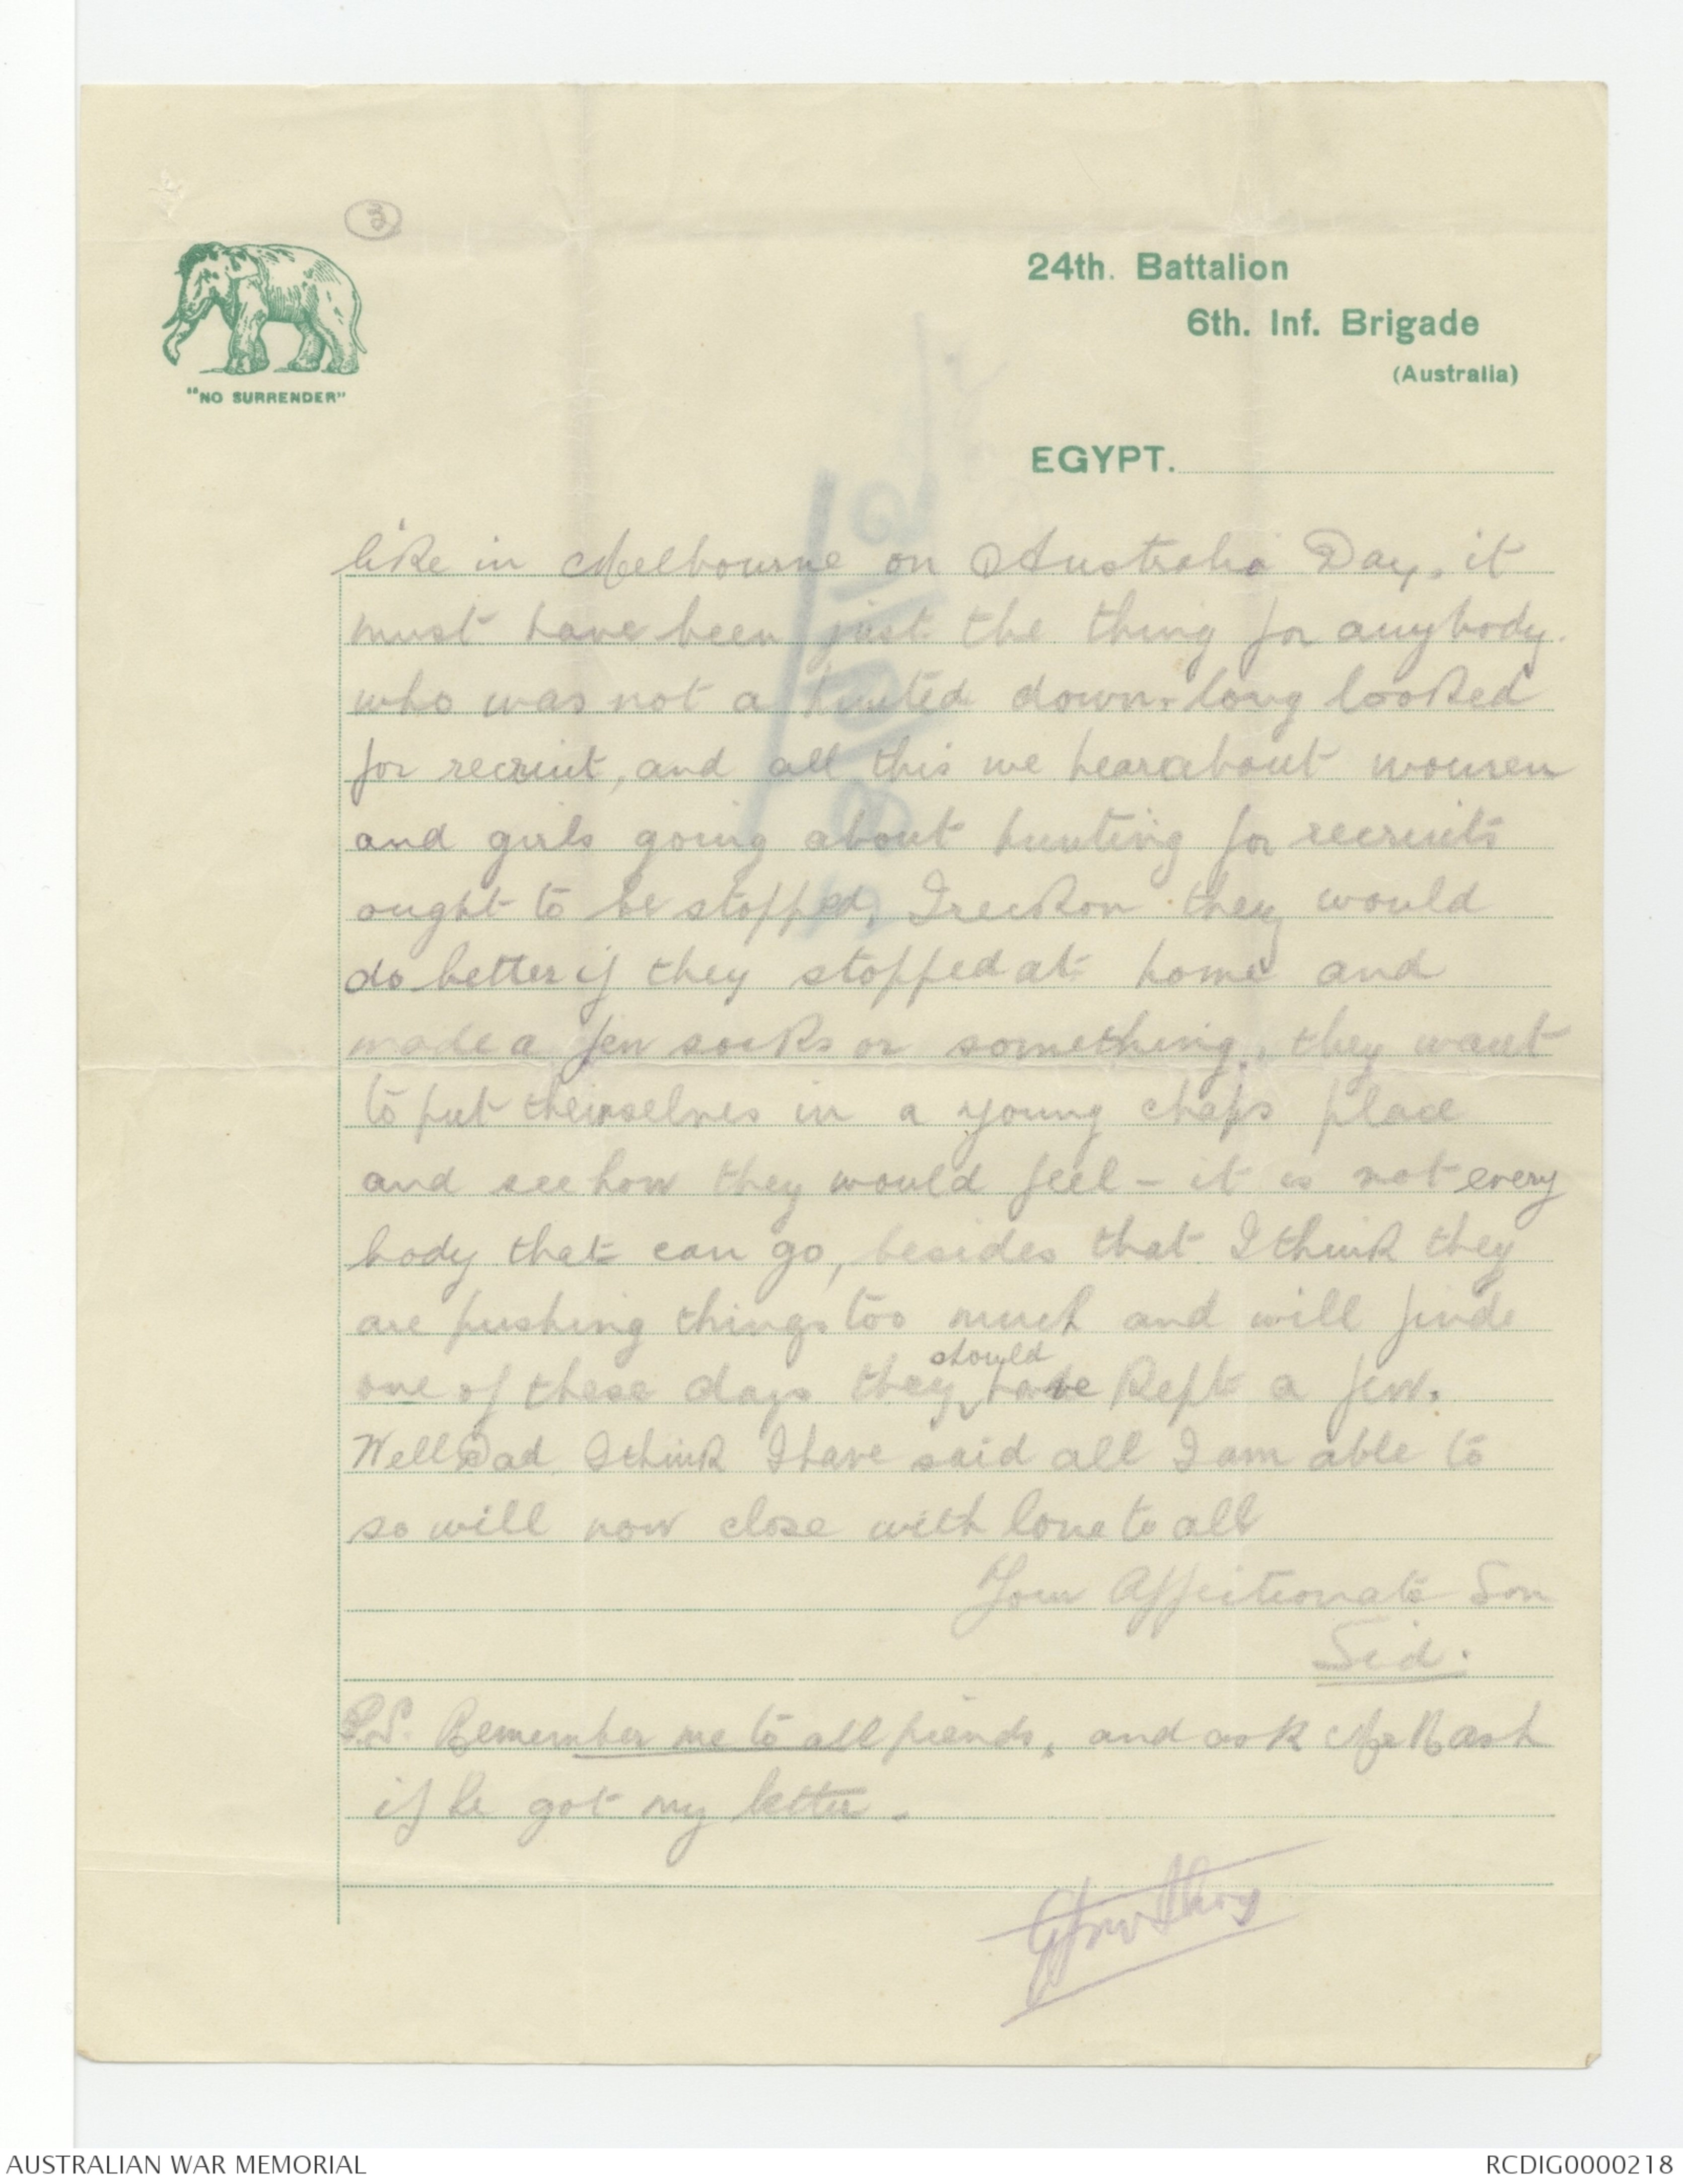 3
"NO SURRENDER"
24th. Battalion
6th. Inf. Brigade
(Australia)
EGYPT.
like in Melbourne on Australia Day, it
must have been just the thing for anybody.
who was not a hunted down, long looked
for recruit, and all this we hear about women
and girls going about hunting for recruits
ought to be stopped, I reckon they would
do better if they stopped at home and
made a few socks or something, they want
to put themselves in a young chaps place
and see how they would feel - it is not every
body that can go, besides that I think they
are pushing things too much and will find
one of these days they should have kept a few.
Well Dad I think I have said all I am able to
so will now close with love to all
Your Affectionate Son
Sid.
P.S. Remember me to all friends, and ask Mr Nash
if he got my letter.
AUSTRALIAN WAR MEMORIAL
RCDIG0000218